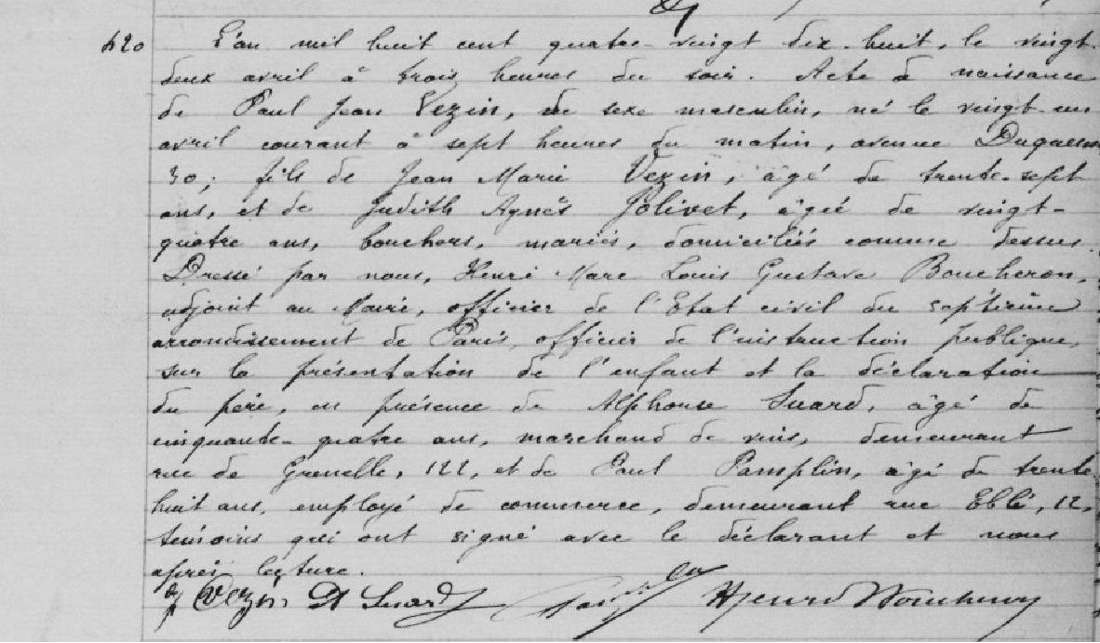 420
L'an mil huit cent quatre-vingt dix-huit, le vingt-
deux avril à trois heures du soir. Acte de naissance
de Paul Jean Vezin, de sexe masculin, né le vingt-un
avril courant à sept heures du matin, avenue Duquesne
30; fils de Jean Marie Vezin, âgé de trente-sept
ans, et de Judith Agnès Jolivet, âgée de vingt-
quatre ans, bouchers, mariés, domiciliés comme dessus.
Dressé par nous, Henri Marc Louis Gustave Boucheron,
adjoint au Maire, officier de l'Etat civil du septième
arrondissement de Paris, officier de l'instruction publique,
sur la présentation de l'enfant et la déclaration
du père, en présence de Alphonse Suard, âgé de
cinquante-quatre ans, marchand de vins, demeurant
rue de Grenelle, 122, et de Paul Pamplin, âgé de trente
huit ans, employé de commerce, demeurant rue Eblé, 12,
témoins qui ont signé avec le déclarant et nous
après lecture.
J Vezin A Suard Henri Boucheron